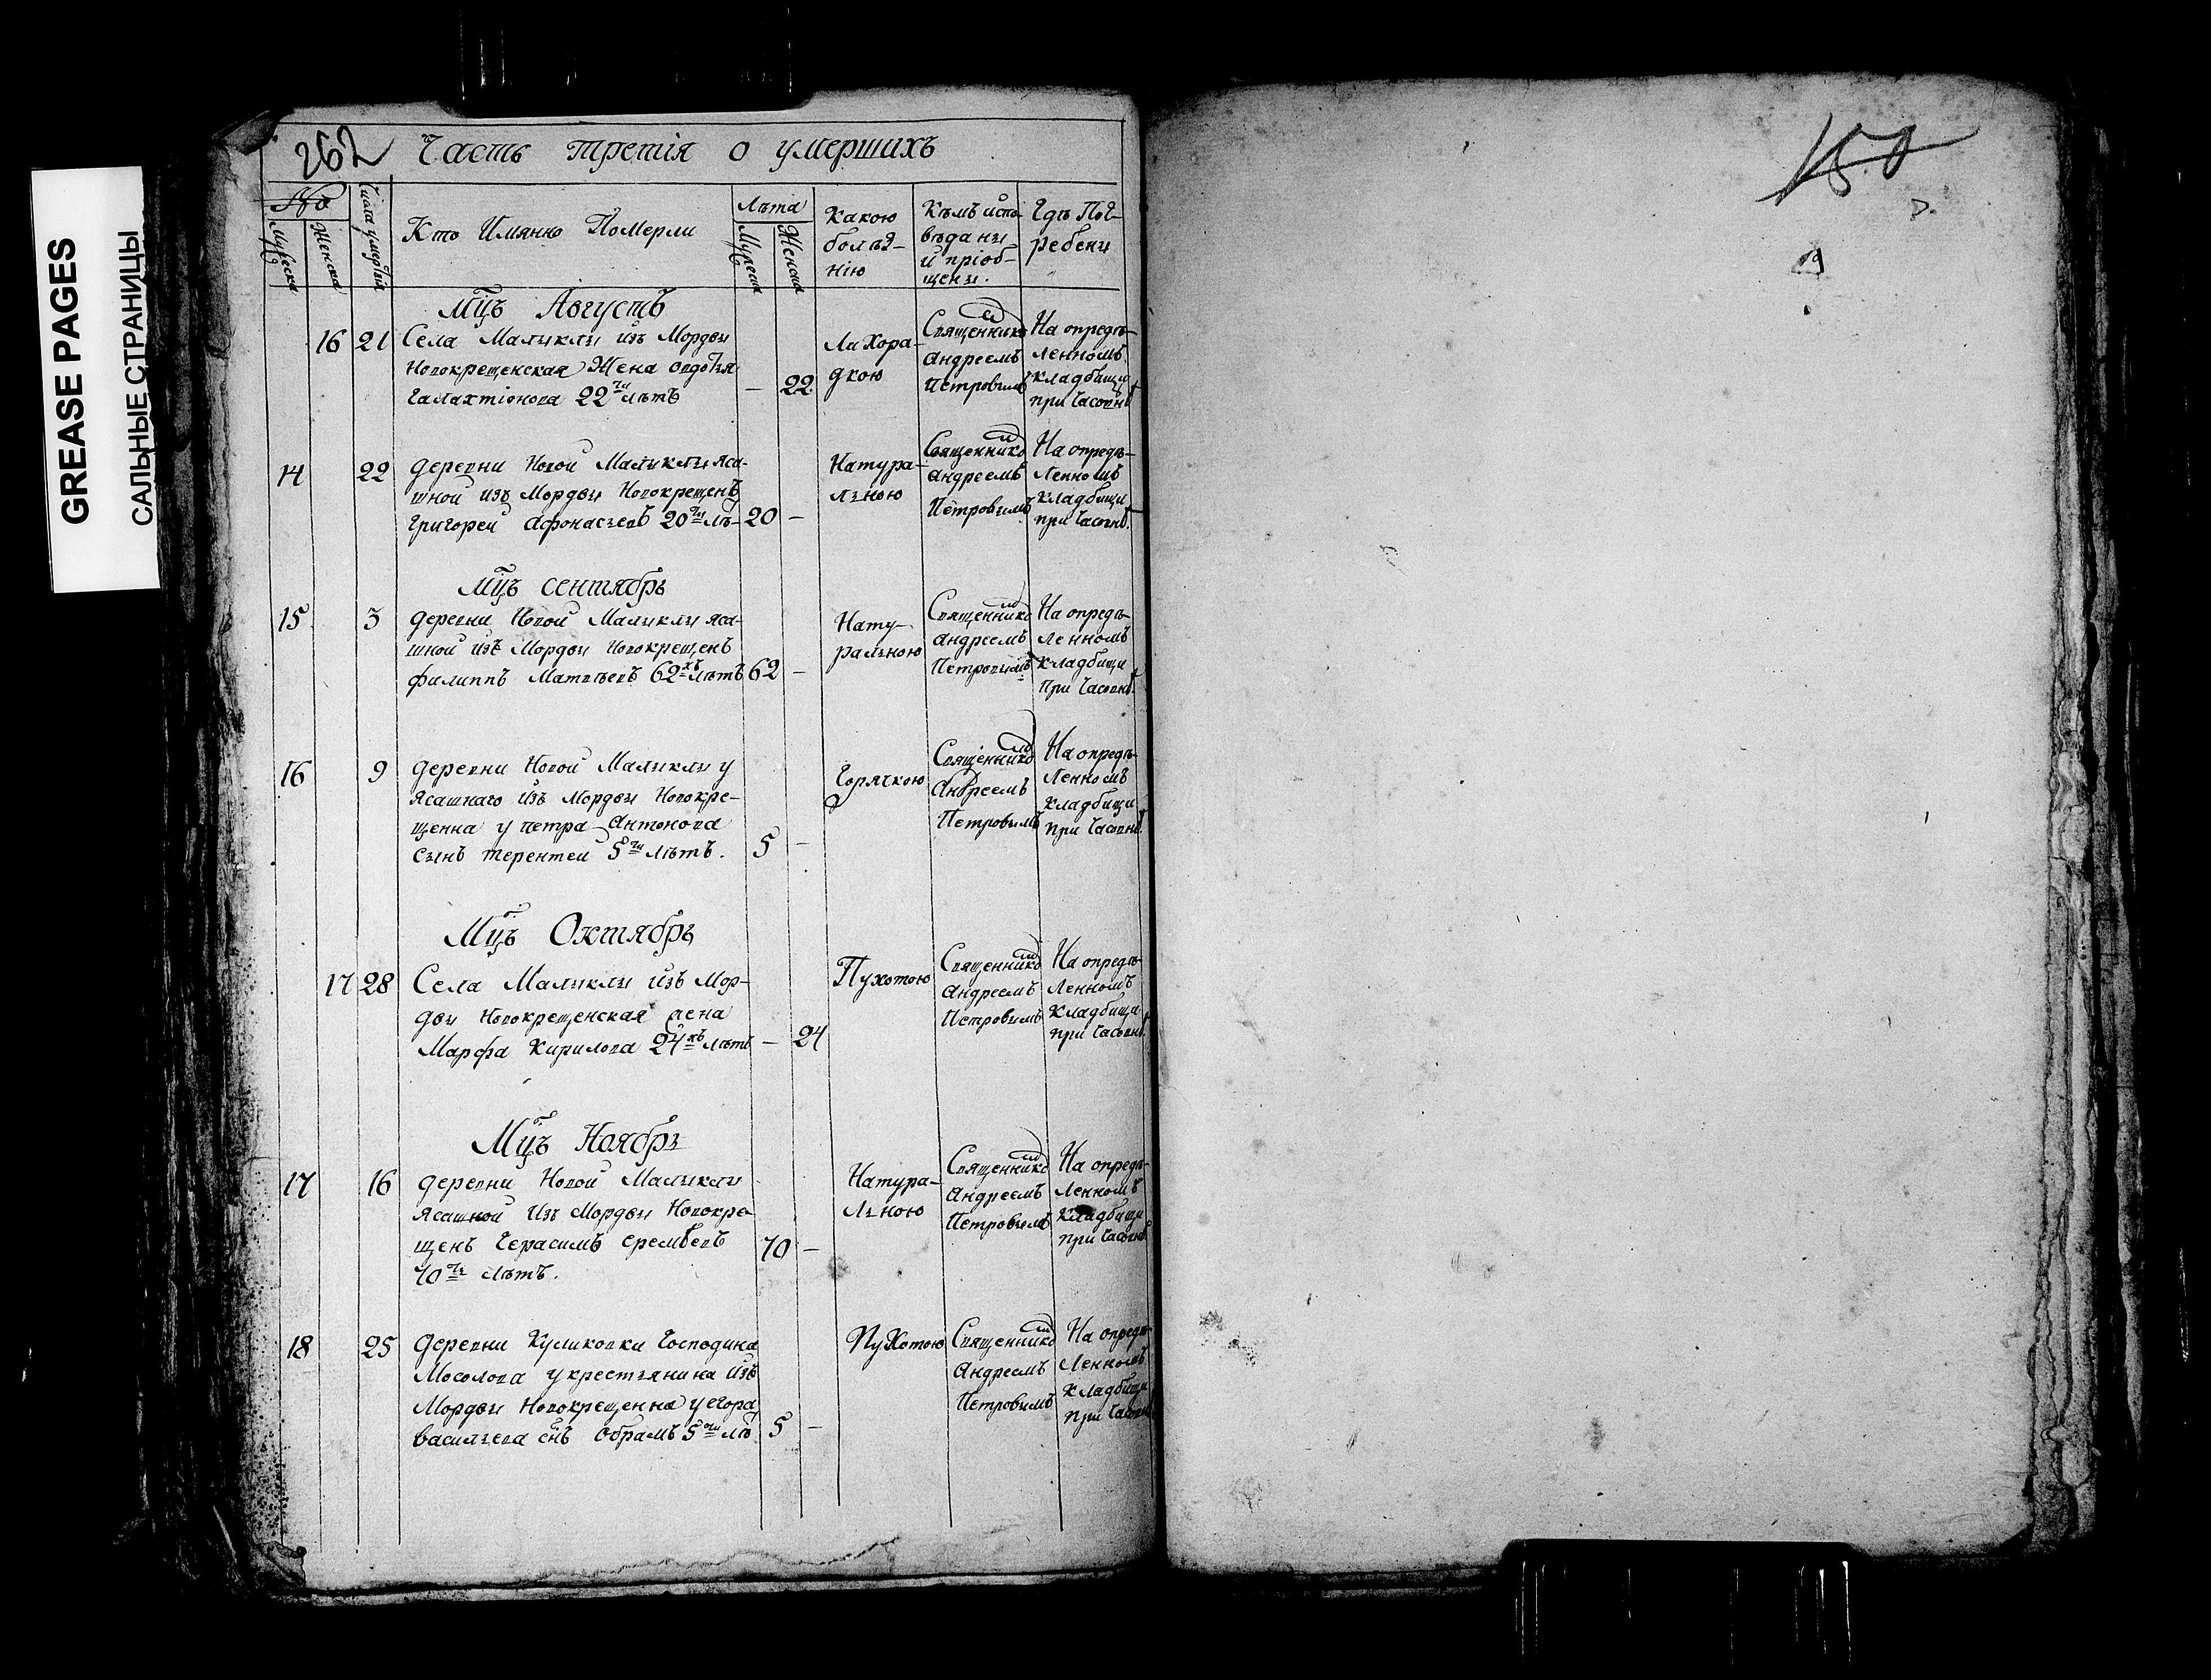 GREASE PAGES
САЛЬНЫЕ СТРАНИЦЫ
262
Часть третія о умершихъ
№
Мужеска
Женска
Числа умертвія
Кто Имянно Померли
Лѣта
Мужеска
Женска
Какою
болѣз-
нію
Кѣмъ испо-
вѣданы
и пріоб-
щены.
Гдѣ Пог-
ребены
Мцъ Августъ
16 21 Села Малыклы изъ Мордвы
новокрещенская Жена овдотья
галахтіонова 22ти лѣтъ — 22
Лихора-
дкою
Священником
андреемъ
Петровымъ
На опредѣ-
ленномъ
кладбищи
при часовнѣ
14 22 деревни Новой Малыклы яса-
шной изъ Мордвы Новокрещенъ
григорей афонасьевъ 20ти лѣ- 20 —
Натура-
льною
Священником
андреемъ
Петровымъ
На опредѣ-
ленномъ
кладбищи
при часовнѣ
Мцъ сентябрь
15 3 деревни Новой Малыклы яса-
шной изъ Мордвы Новокрещенъ
филиппъ Матвѣевъ 62хъ лѣтъ 62 —
Нату-
ральною
Священником
андреемъ
Петровымъ
На опредѣ-
ленномъ
кладбищи
при часовнѣ
16 9 деревни Новой Малыклы у
ясашнаго изъ Мордвы Новокре-
щенна у петра антонова
сынъ терентей 5ти лѣтъ. 5 —
Горячкою
Священником
Андреемъ
Петровымъ
На опредѣ-
ленномъ
кладбищи
при часовнѣ
Мцъ Октябрь
17 28 Села Малыклы изъ Мор-
двы новокрещенская жена
Марфа кирилова 24хъ лѣтъ — 24
Пухотою
Священником
андреемъ
Петровымъ
На опредѣ-
ленномъ
кладбища
при часовнѣ
Мцъ Ноябрь
17 16 деревни Новой Малыклы
ясашной изъ Мордвы Новокре-
щенъ герасимъ еремѣевъ 70 —
70ти лѣтъ.
Натура-
льною
Священником
Андреемъ
Петровымъ
На опредѣ-
ленномъ
кладбищи
при часовнѣ
18 25 деревни Куликовки господина
Мосолова у крестьянина изъ
Мордвы Новокрещенна у егора
васильева снъ обрамъ 5ти лѣ 5 —
Пухотою
Священником
андреемъ
Петровымъ
На опредѣ-
ленномъ
кладбищи
при часовнѣ
150